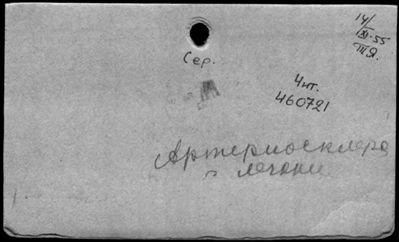 14/
XI-55
Ш.Я.
Сер.
Чит.
460721
Артериосклеро
з лечени